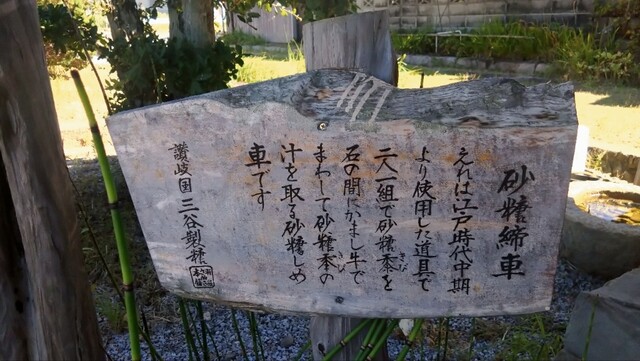 砂糖締車
これは江戸時代中期
より使用した道具で
二人一組で砂糖黍を
きび
石の間にかまし牛で
まわして砂糖黍の
きび
汁を取る砂糖しめ
車です
讃岐国 三谷製糖